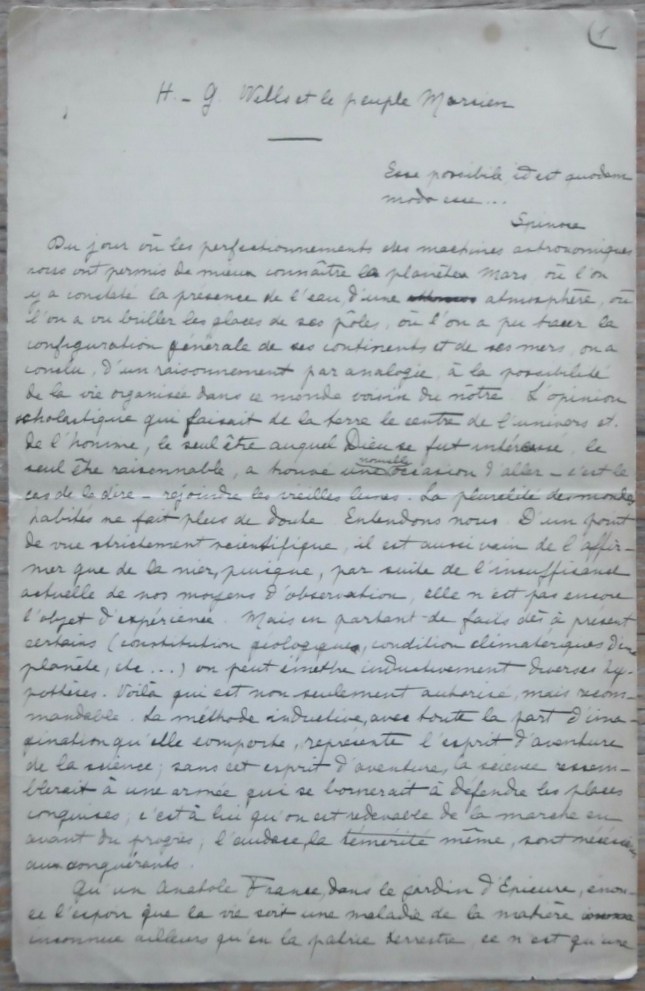 1
H.-G. Wells et le peuple Marsien
Esse possibile, id est quodam
modo esse...
Spinosa
Du jour où les perfectionnements des machines astronomiques
nous ont permis de mieux connaître la planète Mars, où l'on
y a constaté la présence de l'eau, d'une atmosphère, où
l'on a vu briller les glaces de ses pôles, où l'on a pu tracer la
configuration générale de ses continents et de ses mers, on a
conclu, d'un raisonnement par analogie, à la possibilité
de la vie organisée dans ce monde voisin du nôtre. L'opinion
scholastique qui faisait de la terre le centre de l'univers et
de l'homme, le seul être auquel Dieu se fut intéressé, le
seul être raisonnable, a trouvé une nouvelle occasion d'aller - c'est le
cas de le dire - rejoindre les vieilles lunes. La pluralité des mondes
habités ne fait plus de doute. Entendons nous. D'un point
de vue strictement scientifique, il est aussi vain de l'affir-
mer que de la nier, puisque, par suite de l'insuffisance
actuelle de nos moyens d'observation, elle n'est pas encore
l'objet d'expérience. Mais en partant de faits dès à présent
certains (constitution géologique, condition climatériques d'une
planète, etc...) on peut émettre inductivement diverses hy-
pothèses. Voilà qui est non seulement autorisé, mais recom-
mandable. La méthode inductive, avec toute la part d'ima-
gination qu'elle comporte, représente l'esprit d'aventure
de la science; sans cet esprit d'aventure, la science ressem-
blerait à une armée qui se bornerait à défendre les places
conquises; c'est à lui qu'on est redevable de la marche en
avant du progrès; l'audace, la témérité même, sont nécessaires
aux conquérants.
Qu'un Anatole France, dans le jardin d'Epicure, énon-
ce l'espoir que la vie soit une maladie de la matière
inconnue ailleurs qu'en la patrie terrestre, ce n'est qu'une